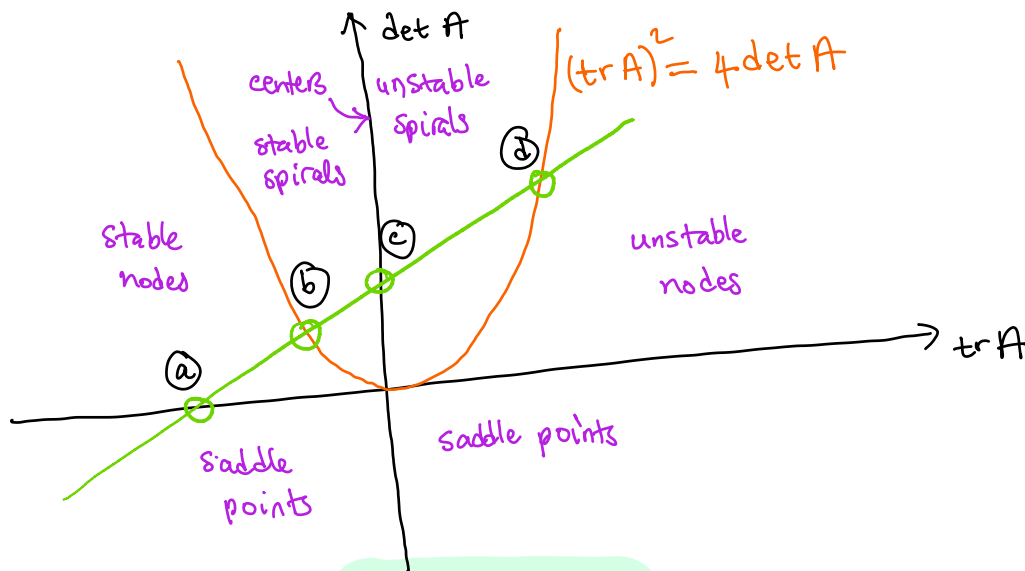 det A
(tr A)² = 4 det A
centers
unstable
spirals
stable
spirals
d
stable
nodes
c
unstable
nodes
b
tr A
a
saddle
points
saddle points